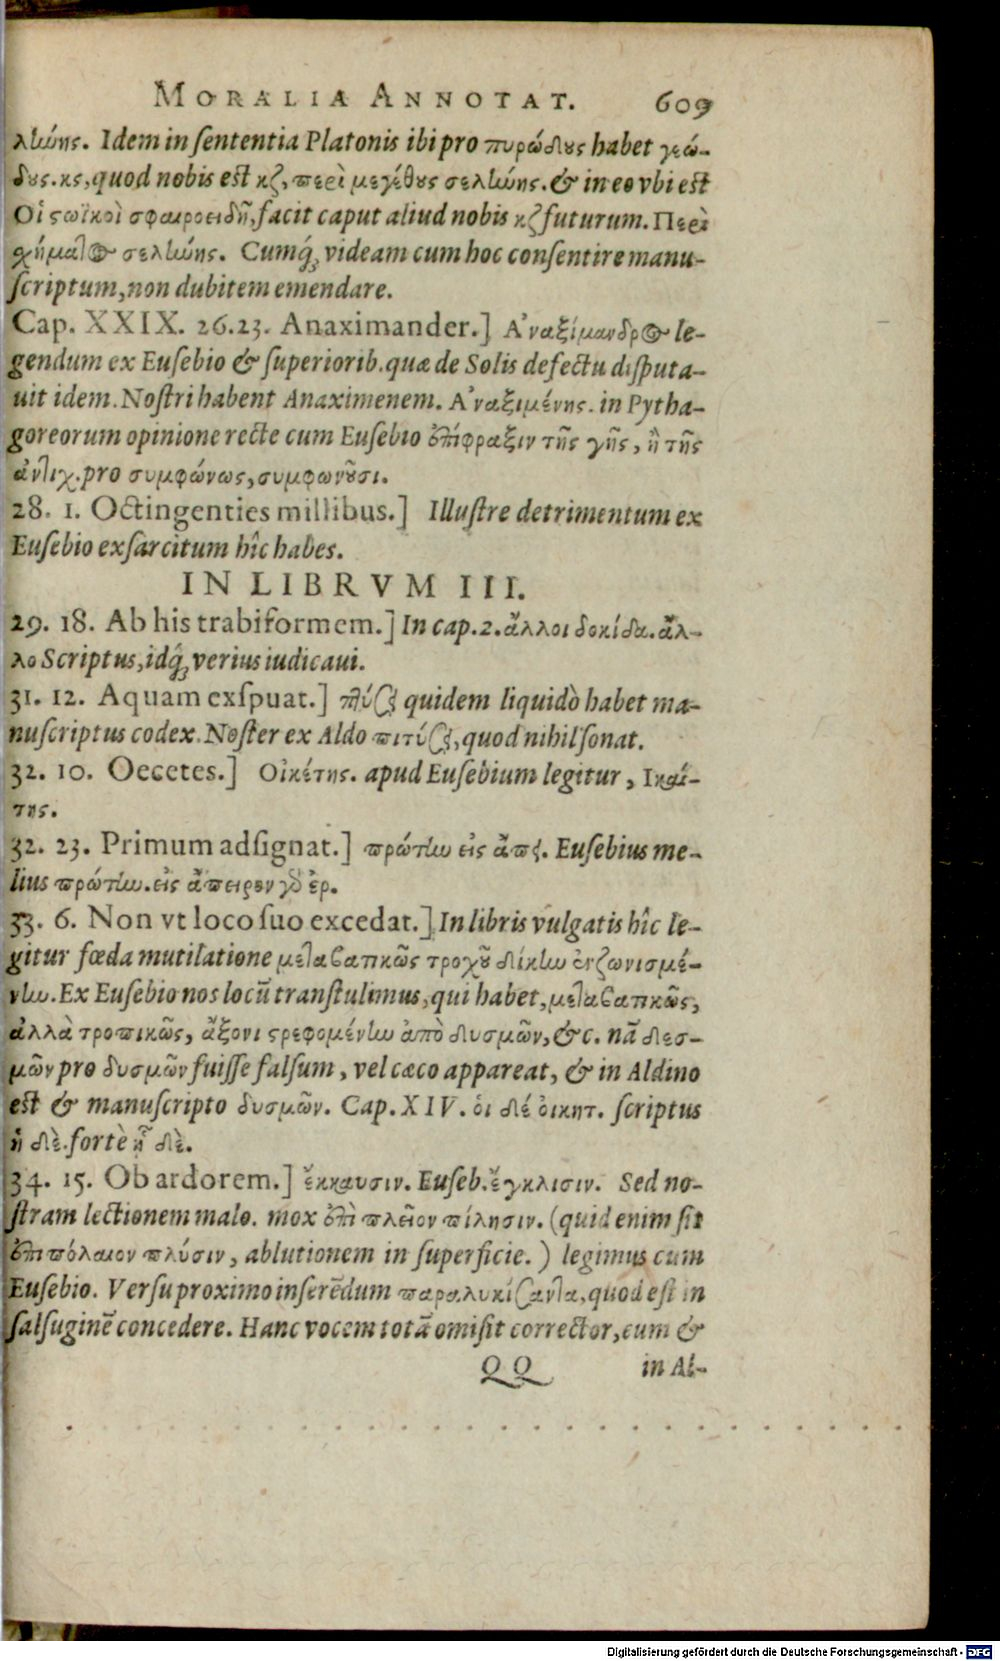 MORALIA ANNOTAT. 609
λήνης. Idem in ſententia Platonis ibi pro πυρώδους habet γεώ-
δους. κς, quod nobis est κζ, περὶ μεγέθους σελήνης. & in eo vbi est
Οἱ ςωϊκοὶ σφαιροειδῆ, facit caput aliud nobis κζ futurum. Περὶ
χήματος σελήνης. Cumq́; videam cum hoc conſentire manu-
ſcriptum, non dubitem emendare.
Cap. XXIX. 26.23. Anaximander.] Ἀναξίμανδρος le-
gendum ex Euſebio & ſuperiorib. quæ de Solis defectu diſputa-
uit idem. Noſtri habent Anaximenem. Ἀναξιμένης. in Pytha-
goreorum opinione recte cum Euſebio ἐπίφραξιν τῆς γῆς, ἢ τῆς
ἀντιχ. pro συμφώνως, συμφωνοῦσι.
28. 1. Octingenties millibus.] Illuſtre detrimentum ex
Euſebio exſarcitum hîc habes.
IN LIBRVM III.
29. 18. Ab his trabiformem.] In cap. 2. ἄλλοι δοκίδα. ἄλ-
λο Scriptus, idq́; verius iudicaui.
31. 12. Aquam exſpuat.] πτύσῃ quidem liquidò habet ma-
nuſcriptus codex. Noſter ex Aldo πιτύσῃ, quod nihil ſonat.
32. 10. Oecetes.] Οἰκέτης. apud Euſebium legitur, Ἱκαί-
της.
32. 23. Primum adſignat.] πρώτην εἰς ἄπει. Euſebius me-
lius πρώτην. εἰς ἄπειρον γὸ ἐρ.
33. 6. Non vt loco ſuo excedat.] In libris vulgatis hîc le-
gitur fœda mutilatione μεταβατικῶς τροχοῦ δίκην ἐνζωνισμέ-
νην. Ex Euſebio nos locũ tranſtulimus, qui habet, μεταβατικῶς,
ἀλλὰ τροπικῶς, ἄξονι ςρεφομένην ἀπὸ δυσμῶν, &c. nã δεσ-
μῶν pro δυσμῶν fuiſſe falſum, vel cæco appareat, & in Aldino
est & manuſcripto δυσμῶν. Cap. XIV. οἱ δέ οἰκητ. ſcriptus
ἡ δὲ. fortè ᾗ δὲ.
34. 15. Ob ardorem.] ἔκκαυσιν. Euſeb. ἔγκλισιν. Sed no-
ſtram lectionem malo. mox ἐπὶ πλεῖον πίλησιν. (quid enim ſit
ἐπιπόλαιον πλύσιν, ablutionem in ſuperficie.) legimus cum
Euſebio. Verſu proximo inſerẽdum παραλυκίσαντα, quod eſt in
ſalſuginẽ concedere. Hanc vocem totã omiſit corrector, cum &
QQ in Al-
Digitalisierung gefördert durch die Deutsche Forschungsgemeinschaft · DFG